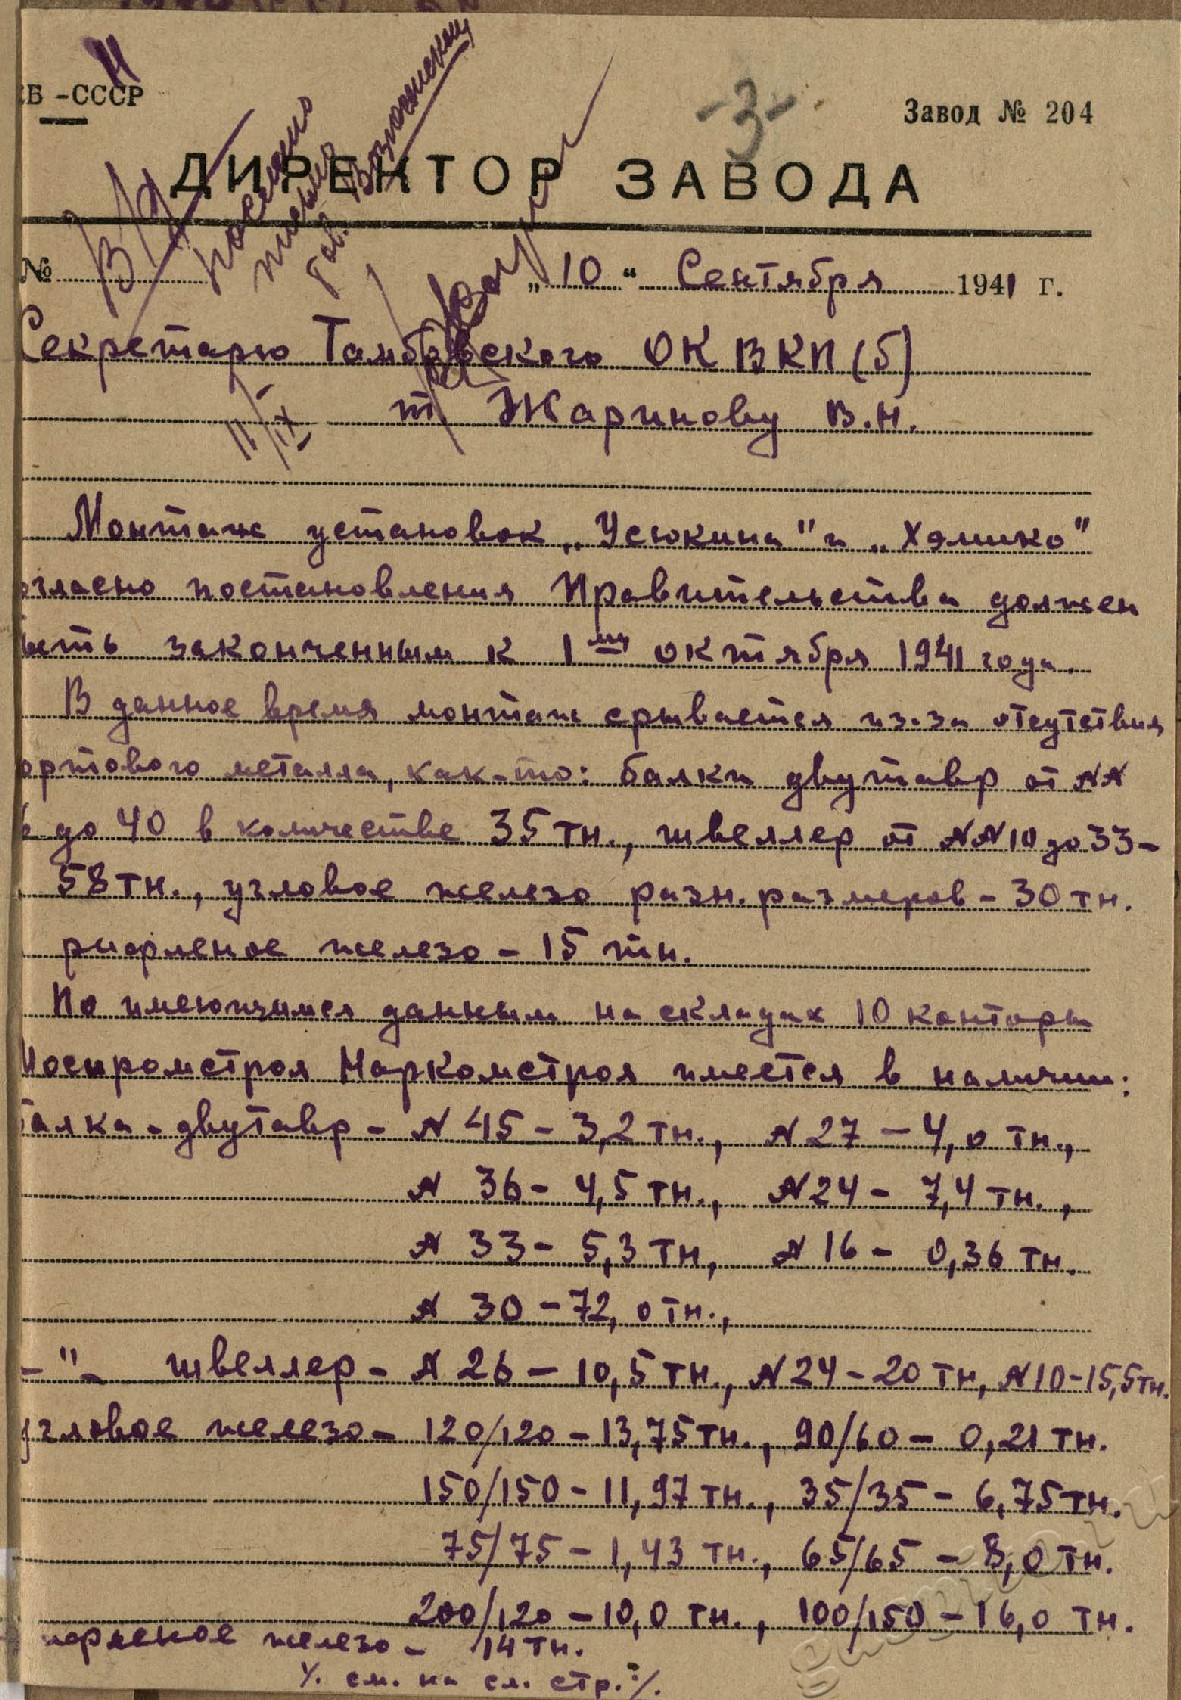 КБ -СССР
Завод № 204
-3-
ДИРЕКТОР ЗАВОДА
В/Д
послано
письмо
тов. Вознесенскому
№ „10“ Сентября 1941 г.
Секретарю Тамбовского ОК ВКП(б)
т Жаринову В.Н.
11/IX
Монтаж установок „Усюкина" и „Хэмико"
огласно постановления Правительства должен
ыть законченным к 1му октября 1941 года.
В данное время монтаж срывается из-за отсутствия
ортового металла, как-то: балки двутавр от NN
до 40 в количестве 35 тн., швеллер от NN 10 до 33-
58 тн., угловое железо разн. размеров - 30 тн.
рифленое железо - 15 тн.
По имеющимся данным на складах 10 конторы
Наркомстроя имеется в наличии:
балка - двутавр - N 45 - 3,2 тн., N 27 - 4,0 тн.,
N 36 - 4,5 тн., N 24 - 7,4 тн.,
N 33 - 5,3 тн, N 16 - 0,36 тн.
N 30 - 72,0 тн.,
-"- швеллер - N 26 - 10,5 тн., N 24 - 20 тн, N 10 - 15,5 тн.
угловое железо - 120/120 - 13,75 тн., 90/60 - 0,21 тн.
150/150 - 11,97 тн., 35/35 - 6,75 тн.
75/75 - 1,43 тн., 65/65 - 8,0 тн.
200/120 - 10,0 тн., 100/150 - 16,0 тн.
рифленое железо - 14 тн.
·/. см. на сл. стр. ·/.
gaspito.ru